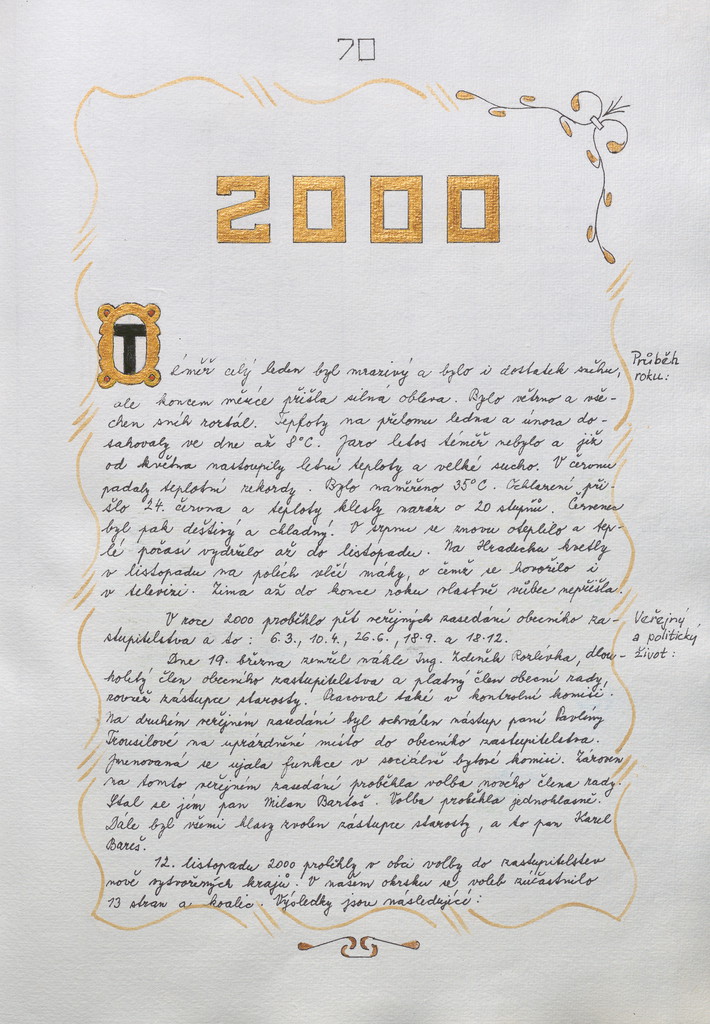 70
2000
Téměř celý leden byl mrazivý a bylo i dostatek sněhu,
Průběh
roku:
ale koncem měsíce přišla silná obleva. Bylo větrno a vše-
chen sníh roztál. Teploty na přelomu ledna a února do-
sahovaly ve dne až 8°C. Jaro letos téměř nebylo a již
od května nastoupily letní teploty a velké sucho. V červnu
padaly teplotní rekordy. Bylo naměřeno 35°C. Ochlazení při-
šlo 24. června a teploty klesly naráz o 20 stupňů. Červenec
byl pak deštivý a chladný. V srpnu se znovu oteplilo a tep-
lé počasí vydrželo až do listopadu. Na Hradecku kvetly
v listopadu na polích vlčí máky, o čemž se hovořilo i
v televizi. Zima až do konce roku vlastně vůbec nepřišla.
V roce 2000 proběhlo pět veřejných zasedání obecního za-
Veřejný
a politický
život:
stupitelstva a to: 6.3., 10.4., 26.6., 18.9. a 18.12.
Dne 19. března zemřel náhle Ing. Zdeněk Rozlívka, dlou-
holetý člen obecního zastupitelstva a platný člen obecní rady,
rovněž zástupce starosty. Pracoval také v kontrolní komisi.
Na druhém veřejném zasedání byl schválen nástup paní Pavlíny
Trousilové na uprázdněné místo do obecního zastupitelstva.
Jmenovaná se ujala funkce v sociálně bytové komisi. Zároveň
na tomto veřejném zasedání proběhla volba nového člena rady.
Stal se jím pan Milan Bartoš. Volba proběhla jednohlasně.
Dále byl všemi hlasy zvolen zástupce starosty, a to pan Karel
Bareš.
12. listopadu 2000 proběhly v obci volby do zastupitelstev
nově vytvořených krajů. V našem okrsku se voleb zúčastnilo
13 stran a koalic. Výsledky jsou následující: